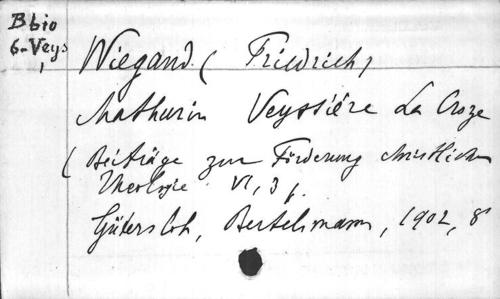 B bio
6-Veys
1
Wiegand (Friedrich)
Mathurin Veyssière La Croze
(Beiträge zur Förderung christlicher
Theologie VI, 3).
Gütersloh, Bertelsmann, 1902, 8°